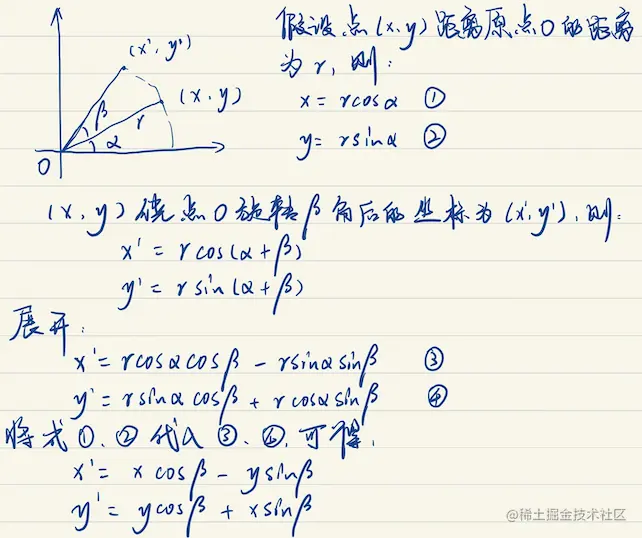 (x', y')
(x, y)
β
r
α
O
假设点(x,y)距离原点O的距离
为r,则:
x = rcosα ①
y = rsinα ②
(x, y)绕点O旋转β角后的坐标为(x',y'),则:
x' = rcos(α+β)
y' = rsin(α+β)
展开:
x' = rcosαcosβ - rsinαsinβ ③
y' = rsinαcosβ + rcosαsinβ ④
将式①、②代入③、④,可得,
x' = xcosβ - ysinβ
y' = ycosβ + xsinβ
@稀土掘金技术社区